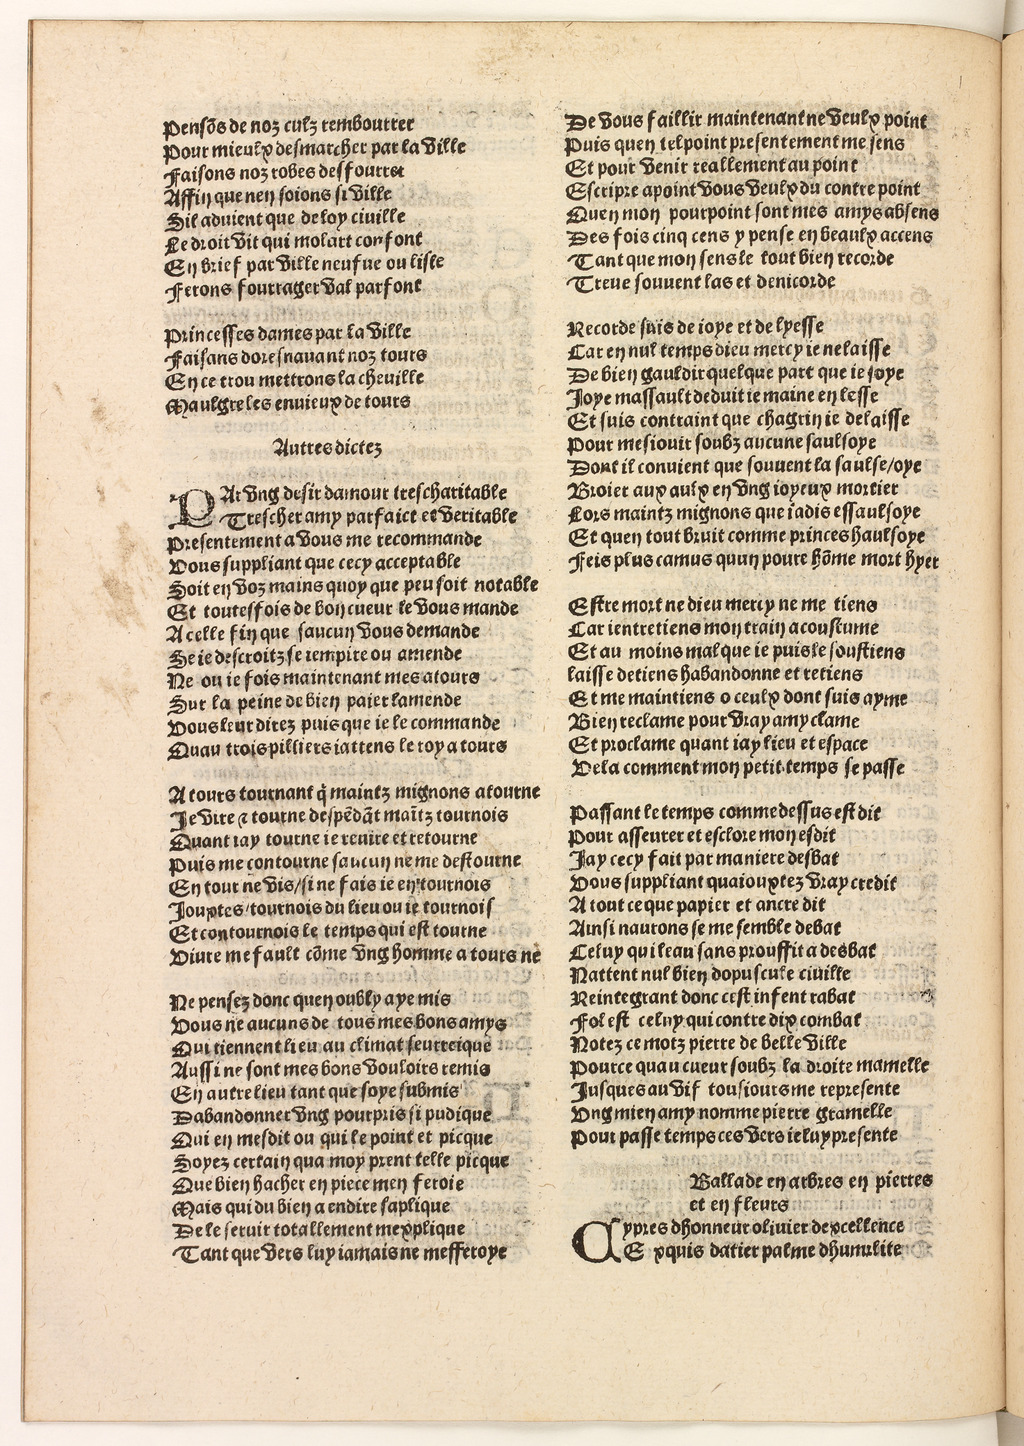 Pensõs de noz culz rembourrer
Pour mieulx desmarcher par la ville
Faisons noz robes desfourrer
Affin que nen soions si ville
Sil advient que de loy civille
Le droit vit qui molart confont
En brief par ville neufve ou lisle
Ferons fourrager val parfont
Princesses dames par la ville
Faisans doresnavant noz tours
En ce trou mettrons la cheville
Maulgre les envieux de tours
Autres dictez
PAr vng desir damour trescharitable
Trescher amy parfaict et veritable
Presentement a vous me recommande
Vous suppliant que cecy acceptable
Soit en voz mains quoy que peu soit notable
Et toutesfois de bon cueur le vous mande
A celle fin que saucun vous demande
Se ie descroitz se iempire ou amende
Ne ou ie fois maintenant mes atours
Sur la peine de bien paier lamende
Vous leur direz puis que ie le commande
Quau trois pilliers iattens le roy a tours
A tours tournant q̃ maintz mignons atourne
Je vire ⁊ tourne despẽdãt maĩtz tournois
Quant iay tourne ie revire et retourne
Puis me contourne saucun ne me destourne
En tour ne vis/si ne fais ie en tournois
Jouxtes/tournois du lieu ou ie tournois
Et contournois le temps qui est tourne
Vivre me fault cõme vng homme a tours ne
Ne pensez donc quen oubly aye mis
Vous ne aucuns de tous mes bons amys
Qui tiennent lieu au climat seurreique
Aussi ne sont mes bons vouloirs remis
En autre lieu tant que soye submis
Dabandonner vng pourpris si pudique
Qui en mesdit ou qui le point et picque
Soyez certain qua moy prent telle picque
Que bien hacher en piece men feroie
Mais qui du bien a en dire saplique
De le servir totallement mexplique
Tant que vers luy iamais ne mefferoye
De vous faillir maintenant ne veulx point
Puis quen tel point presentement me sens
Et pour venir reallement au point
Escripre apoint vous veulx du contrepoint
Quen mon pourpoint sont mes amys absens
Des fois cinq cens y pense en beaulx accens
Tant que mon sens le tout bien recorde
Treve souvent las et denicorde
Recorde suis de ioye et de lyesse
Car en nul temps dieu mercy ie ne laisse
De bien gauldir quelque part que ie soye
Joye massault deduit ie maine en lesse
Et suis contraint que chagrin ie delaisse
Pour mesiouir soubz aucune saulsoye
Dont il convient que souvent la saulse/oye
Broier aux aulx en vng ioyeux mortier
Lors maintz mignons que iadis essaulsoye
Et quen tout bruit comme princes haulsoye
Feis plus camus quun povre hõme mort hyer
Estre mort ne dieu mercy ne me tiens
Car ientretiens mon train acoustume
Et au moins mal que ie puis le soustiens
laisse detiens habandonne et retiens
Et me maintiens o ceulx dont suis ayme
Bien reclame pour vray amy clame
Et proclame quant iay lieu et espace
Vela comment mon petit temps se passe
Passant le temps comme dessus est dit
Pour asseurer et esclore mon esdit
Jay cecy fait par maniere desbat
Vous suppliant quaiouxtez vray credit
A tout ce que papier et ancre dit
Ainsi naurons se me semble debat
Celuy qui leau sans prouffit a desbat
Nattent nul bien dopuscule civille
Reintegrant donc cest infent rabat
Fol est celuy qui contre dix combat
Notez ce motz pierre de belle ville
Pource quau cueur soubz la droite mamelle
Jusques au vif tousiours me represente
Vng mien amy nomme pierre gramelle
Pour passe temps ces vers ie luy presente
Ballade en arbres en pierres
et en fleurs
Cypres dhonneur olivier dexcellence
Exquis datier palme dhumilite